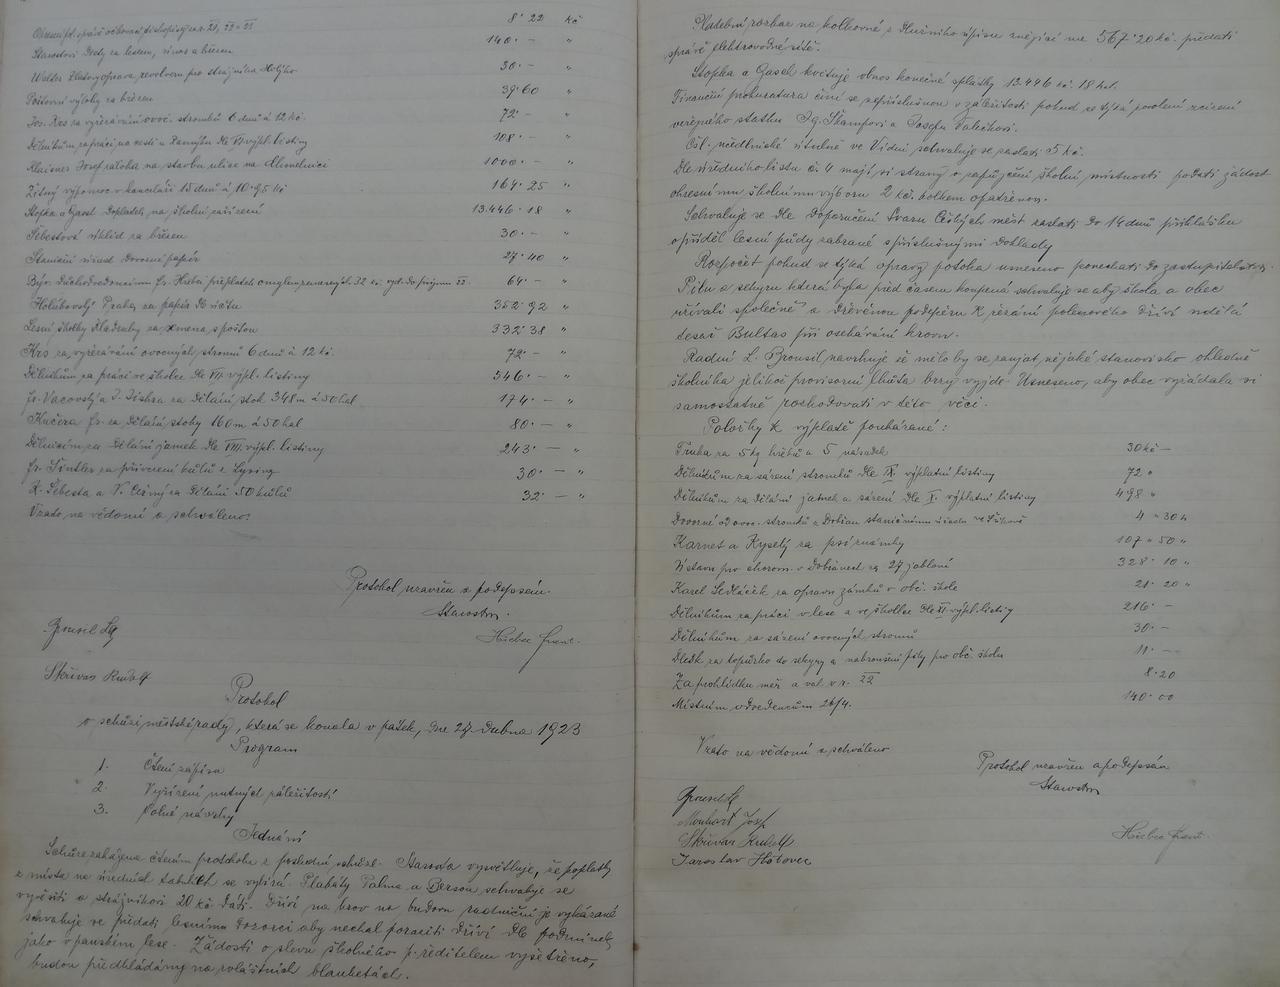 8·22 Kč
Starostovi Diety za leden, únor a březen 140·— "
Walter Zlatovy oprava revolveru pro strážníka 30·— "
Poštovní výlohy za březen 39·60 "
Jos. Krs za vyřezávání ovoc. stromků 6 dnů á 12 kč. 72·— "
Dělníkům za práci na cestě Dle VI výpl. listiny 108·— "
Josef záloha na stavbu ulice na 1000·— "
Žitný výpomoc v kanceláři 15 dnů á 10·95 kč 164·25 "
Stopka a Gassl Doplatek na školní zařízení 13.446·18 "
Šebestová úklid za březen 30·— "
Staniční úřad Dovozné papír 27·40 "
64·— "
Holubovský Praha za papír Dle účtu 352·92 "
Lesní školky Kladruby za semena s poštou 332·38 "
Krs za vyřezávání ovocných stromů 6 dnů á 12 kč. 72·— "
Dělníkům za práci ve školce Dle VII. výpl. listiny 546·— "
fr. Vacovský a J. Jiskra za Dělání stok 348 m á 50 hal 174·— "
Kučera fr. za Dělání stoky 160 m á 50 hal 80·— "
Dělníkům za Dělání jamek Dle VIII. výpl. listiny 243·— "
fr. Šintler za přivezení kůlů z Lysiny 30·— "
K. Šebesta a V. Černý za Dělání 50 kůlů 32·— "
Vzato na vědomí a schváleno.
Protokol uzavřen a podepsán.
Starosta.
Brousil
Skřivan Rudolf
Protokol
o schůzi městské rady, která se konala v pátek, dne 27. dubna 1923
Program
1. Čtení zápisu
2. Vyřízení nutných záležitostí
3. Volné návrhy
Jednání
Schůze zahájena čtením protokolu z poslední schůze. Starosta vysvětluje, že poplatky
z místa na úředních tabulích se vybírá. Plakáty Palma a Berson schvaluje se
vyvěsiti a strážníkovi 20 kč dáti. Dříví na krov na budovu radniční je vykázané
schvaluje se předati lesnímu dozorci aby nechal poraziti dříví dle podmínek
jako v panském lese. Žádosti o slevu školného p. ředitelem vyšetřeno,
budou předkládány na zvláštních blanketách.
Platební rozkaz na kolkovné z Dlužního úpisu znějící na 567·20 kč. předati
správě elektrovodné sítě.
Stopka a Gassl kvituje obnos konečné splátky 13.446 kč. 18 hal.
Finanční prokuratura činí se nepříslušnou v záležitosti pokud se týká povolení zcizení
veřejného statku Ig. Štamfovi a Josefu Palečkovi.
ve Vídni schvaluje se zaslati 5 kč.
Dle úředního listu č. 4 mají si strany o zapůjčení školní místnosti podati žádost
okresnímu školnímu výboru 2 kč. kolkem opatřenou.
Schvaluje se Dle Doporučení Svazu Českých měst zaslati Do 14 dnů přihlášku
o příděl lesní půdy zabrané s příslušnými Doklady
Rozpočet pokud se týká opravy potoka usneseno ponechati Do zastupitelstva.
Pilu a sekyru která byla před časem koupená schvaluje se aby škola a obec
užívali společně a dřevěnou podepěru k řezání polenového dříví udělá
tesař Bultas při osekávání krovu.
Radní L. Brousil navrhuje že mělo by se zaujat nějaké stanovisko ohledně
školníka jelikož provisorní lhůta brzy vyjde. Usneseno, aby obec vyžádala si
samostatně rozhodovati v této věci.
Položky k výplatě poukázané:
Truka za 5 kg hřebů a 5 násadek 30 kč —
Dělníkům za sázení stromků Dle IX. výplatní listiny 72 "
Dělníkům za Dělání jamek a sázení Dle X. výplatní listiny 498 "
Dovozné od ovoc. stromků z Dobřan staničnímu úřadu 4 " 30 h
Karnet a Kyselý za psí známky 107 " 50 "
Ústavu pro chorom. v Dobřanech za 27 jabloní 328·10 "
Karel Sedláček za opravu zámků v obč. škole 21·20 "
Dělníkům za práci v lese a ve školce Dle XI. výpl. listiny 216·—
Dělníkům za sázení ovocných stromů 30·—
za topůrko do sekyry a nabroušení pily pro obč. školu 11·—
Za prohlídku měr a vah v r. 22 8·20
Místním 26/4. 140·00
Vzato na vědomí a schváleno
Protokol uzavřen a podepsán
Starosta
Brousil
Monhart Josef
Skřivan Rudolf
Jaroslav